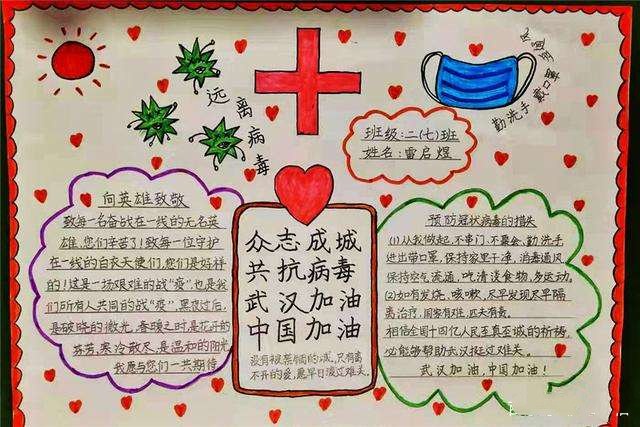 远离病毒
勤洗手
戴口罩
班级:二(七)班
姓名:雷启煜
向英雄致敬
致每一名奋战在一线的无名英
雄,您们辛苦了!致每一位守护
在一线的白衣天使们,您们是好样
的!这是一场艰难的战“疫”也是我
们所有人共同的战“疫”黑夜过后,
是破晓的微光,春暖之时是花开的
芬芳,寒冷散尽,是温和的阳光
我愿与您们一共期待
众志成城
共抗病毒
武汉加油
中国加油
没有被禁锢的城,只有离
不开的爱,愿早日渡过难关。
预防冠状病毒的措失
(1)从我做起,不串门,不聚会,勤洗手
进出带口罩,保持家里干净,消毒通风
保持空气流通,吃清淡食物,多运动。
(2)如有发烧,咳嗽,尽早发现尽早隔
离治疗,国家有难,匹夫有责。
相信全国十四亿人民至真至诚的祈祷,
必能够帮助武汉挺过难关。
武汉加油,中国加油!